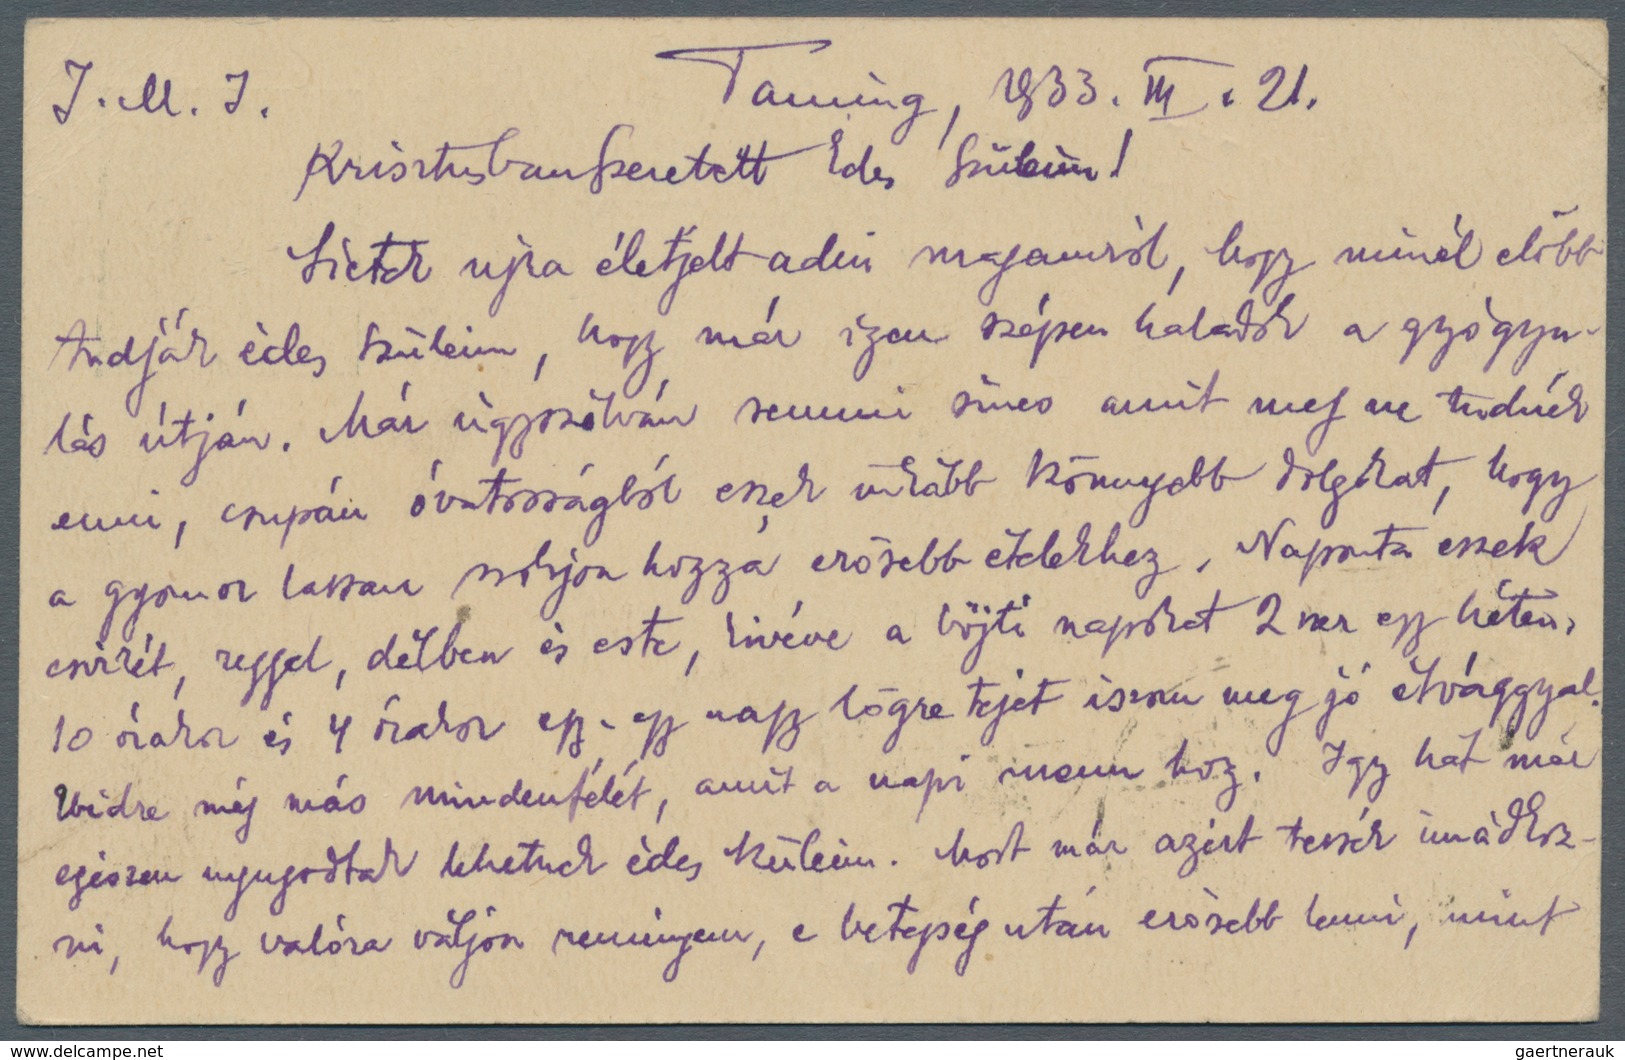 J. M. J.
Taming, 1933. III. 21.
Krisztusban szeretett Édes Szüleim!
Sietek ujra életjelt adni magamról, hogy minél előbb
tudják édes Szüleim, hogy már igen szépen haladok a gyógyu-
lás útján. Már úgyszólván semmi sincs amit meg ne tudnék
enni, csupán óvatosságból eszek inkább könnyebb dolgokat, hogy
a gyomor lassan szokjon hozzá erősebb ételekhez. Naponta eszek
csirkét, reggel, délben és este, kivéve a böjti napokat 2 szer egy héten,
10 órakor és 4 órakor egy-egy nagy bögre tejet iszom meg jó étvággyal.
Ebédre még más mindenfélét, amit a napi menu hoz. Igy hát már
egészen nyugodtak lehetnek édes Szüleim. Most már azért tessék imádkoz-
ni, hogy valóra váljon reményem, e betegség után erősebb lenni, mint
www.delcampe.net
gaertnerauk